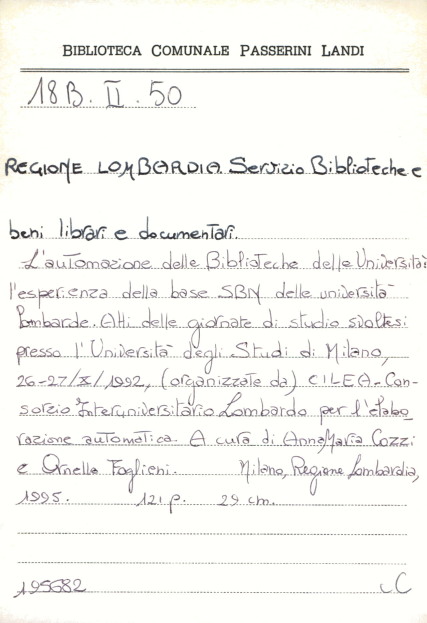 BIBLIOTECA COMUNALE PASSERINI LANDI
18B. II. 50
REGIONE LOMBARDIA. Servizio Biblioteche e
beni librari e documentari.
L'automazione delle Biblioteche delle Università:
l'esperienza della base SBN delle università
lombarde. Atti delle giornate di studio svoltesi
presso l'Università degli Studi di Milano,
26-27/X/1992, (organizzate da) CILEA-Con-
sorzio Interuniversitario Lombardo per l'elabo
razione automatica. A cura di AnnaMaria Cozzi
e Ornella Foglieni. Milano, Regione Lombardia,
1995. 121 p. 29 cm.
195682